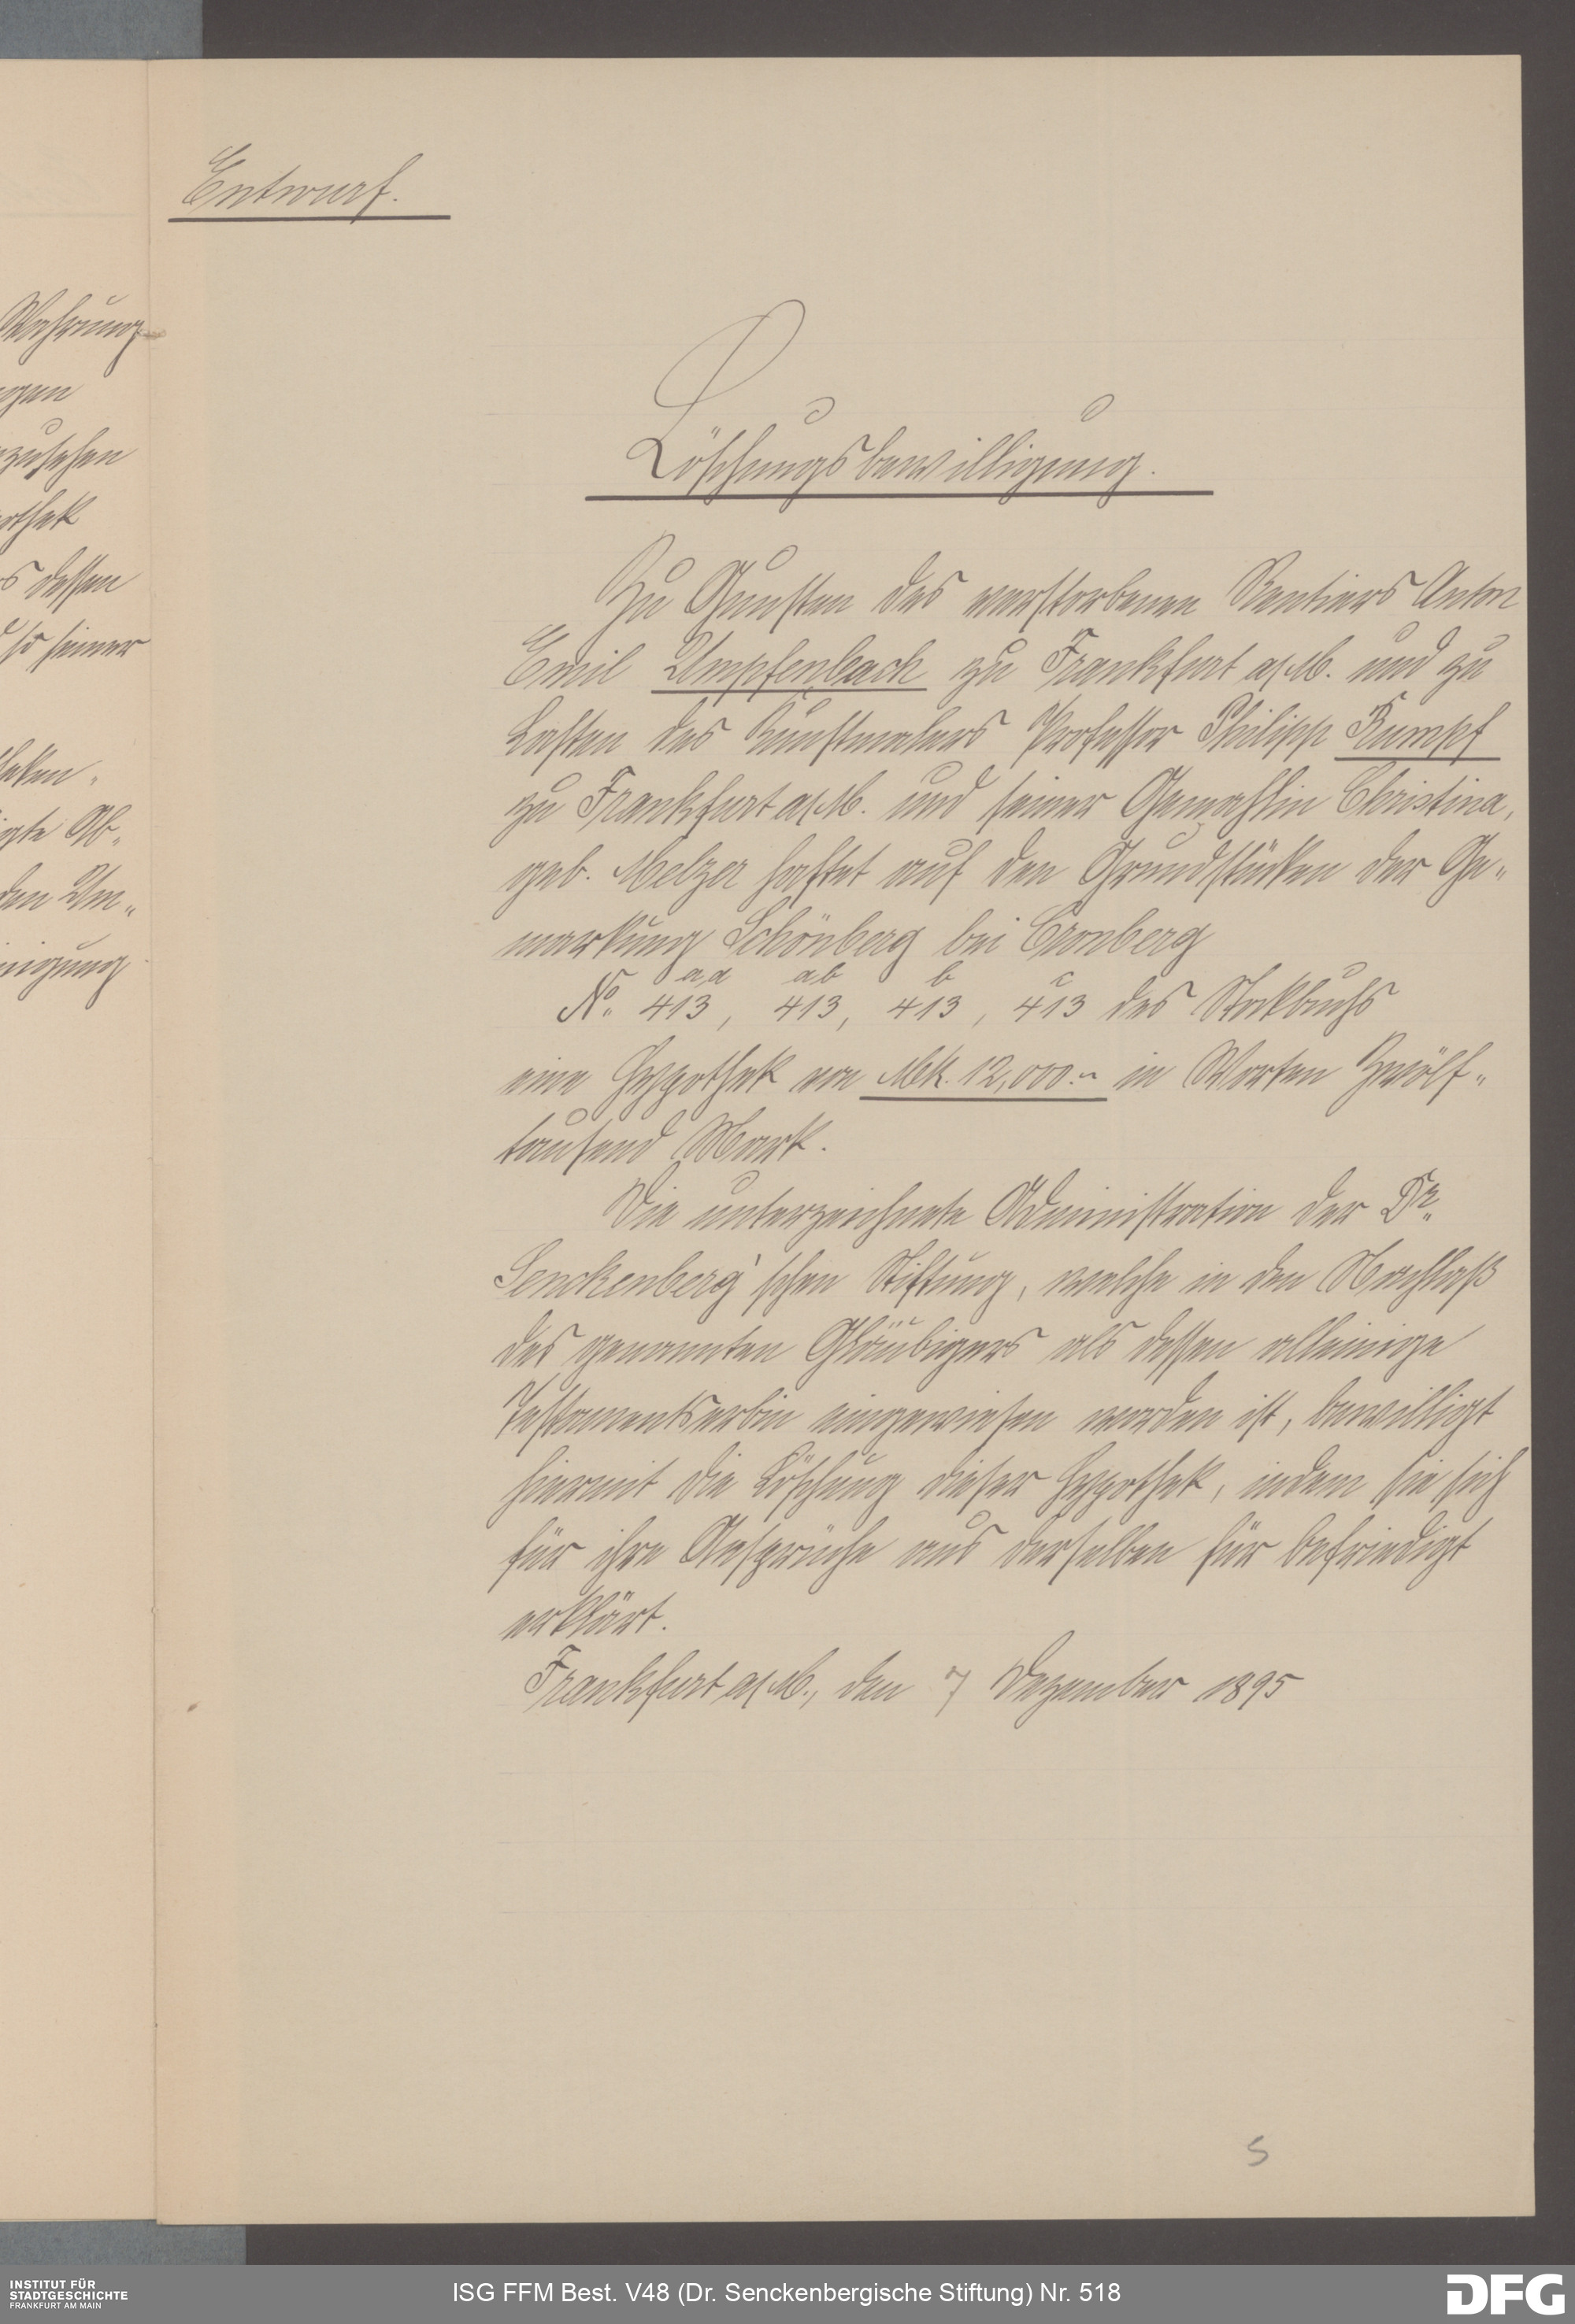 Entwurf.
Wahrung
gen
zusehen
othek
s dessen
so seiner
igte Ab-
den Um-
inigung
Löschungsbewilligung.
Zu Gunsten des verstorbenen Rentiers Anton
Emil Umpfenbach zu Frankfurt a/M. und zu
Lasten des Kunstmalers Professor Philipp Rumpf
zu Frankfurt a/M. und seiner Gemahlin Christina,
geb. Melzer haftet auf den Grundstücken der Ge-
markung Schönberg bei Cronberg
No. 413 aa, 413 ab, 413 b, 413 c des Stockbuchs
eine Hypothek von Mk. 12,000.- in Worten Zwölf-
tausend Mark.
Die unterzeichnete Administration der Dr.
Senckenberg'schen Stiftung, welche in den Nachlaß
des genannten Gläubigers als dessen alleinige
Testamentserbin eingewiesen worden ist, bewilligt
hiermit die Löschung dieser Hypothek, indem sie sich
für ihre Ansprüche aus derselben für befriedigt
erklärt.
Frankfurt a/M., den 7 Dezember 1895
5
INSTITUT FÜR
STADTGESCHICHTE
FRANKFURT AM MAIN
ISG FFM Best. V48 (Dr. Senckenbergische Stiftung) Nr. 518
DFG